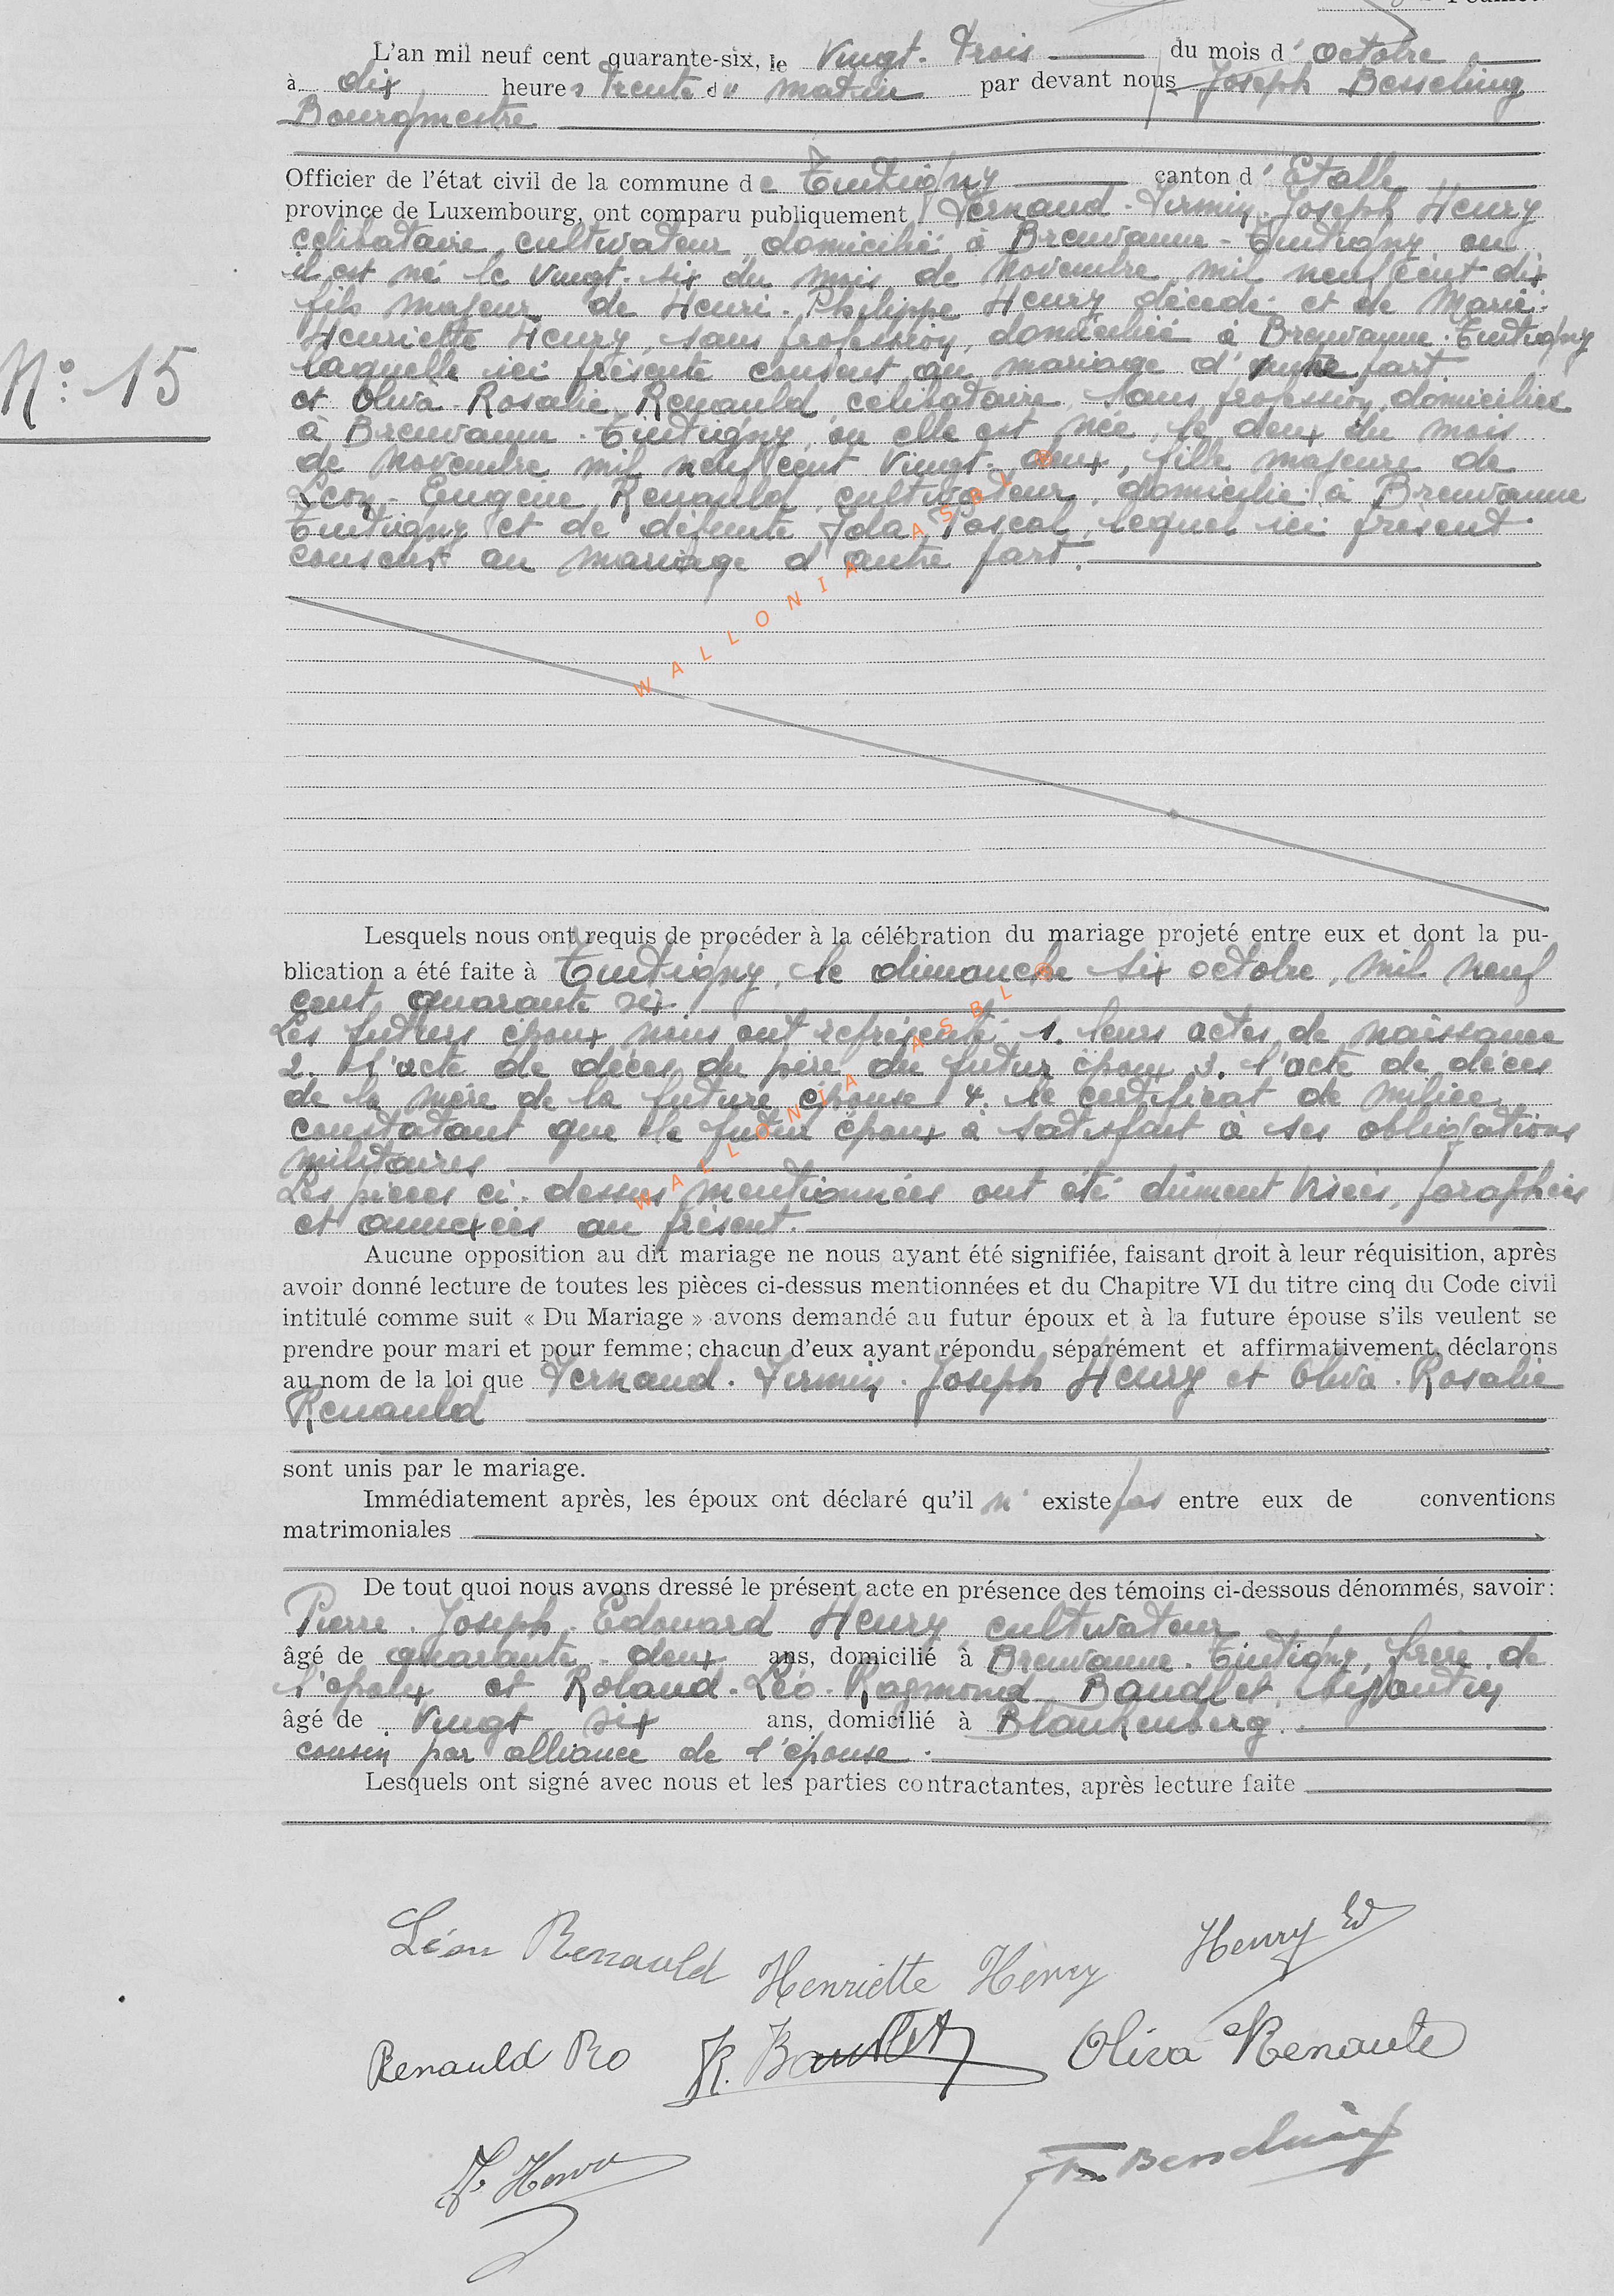 L'an mil neuf cent quarante-six, le vingt-trois du mois d'octobre
à dix heures trente du matin par devant nous Joseph Besseling
Bourgmestre
Officier de l'état civil de la commune de Tintigny canton d'Etalle
province de Luxembourg, ont comparu publiquement Fernand-Firmin-Joseph Henry
célibataire, cultivateur, domicilié à Breuvanne-Tintigny ou
il est né le vingt-six du mois de novembre mil neuf cent dix
fils majeur de Henri-Philippe Henry décédé et de Marie-
Henriette Henry, sans profession, domiciliée à Breuvanne-Tintigny
laquelle ici présente consent au mariage d' part
N° 15
et Oliva-Rosalie Renauld célibataire, sans profession, domiciliée
à Breuvanne-Tintigny, ou elle est née le deux du mois
de novembre mil neuf cent vingt-deux, fille majeure de
Léon-Eugène Renauld, cultivateur, domicilié à Breuvanne
Tintigny et de défunte Ida Pascal, lequel ici présent
consent au mariage d'autre part.
WALLONIA ASBL
Lesquels nous ont requis de procéder à la célébration du mariage projeté entre eux et dont la pu-
blication a été faite à Tintigny, le dimanche six octobre, mil neuf
cent quarante six
Les futurs époux nous ont représenté: 1. leurs actes de naissance
2. l'acte de décès du père du futur époux 3. l'acte de décès
de la mère de la future épouse 4. le certificat de milice
constatant que le futur époux a satisfait à ses obligations
militaires
Les pièces ci-dessus mentionnées ont été dûment visées, paraphées
et annexées au présent.
WALLONIA ASBL
Aucune opposition au dit mariage ne nous ayant été signifiée, faisant droit à leur réquisition, après
avoir donné lecture de toutes les pièces ci-dessus mentionnées et du Chapitre VI du titre cinq du Code civil
intitulé comme suit « Du Mariage » avons demandé au futur époux et à la future épouse s'ils veulent se
prendre pour mari et pour femme; chacun d'eux ayant répondu séparément et affirmativement, déclarons
au nom de la loi que Fernand-Firmin-Joseph Henry et Oliva-Rosalie
Renauld
sont unis par le mariage.
Immédiatement après, les époux ont déclaré qu'il n' existe pas entre eux de conventions
matrimoniales
De tout quoi nous avons dressé le présent acte en présence des témoins ci-dessous dénommés, savoir:
Pierre-Joseph-Edouard Henry cultivateur
âgé de quarante-deux ans, domicilié à Breuvanne-Tintigny, frère de
l'époux et Roland-Léo-Raymond Baudlet,
âgé de vingt six ans, domicilié à Blankenberg.
cousin par alliance de l'épouse.
Lesquels ont signé avec nous et les parties contractantes, après lecture faite
Léon Renauld Henriette Henry Henry Ed
Renauld Ro R. Baudlet Oliva Renauld
F. Henry Besseling